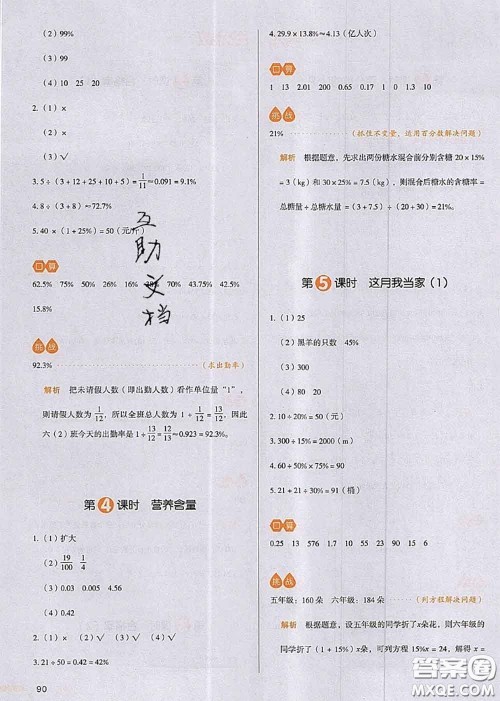 (2) 99%
(3) ×
(4) 10 25 20
2.(1) ×
(2) ×
(3) √
3.5÷(3+12+25+10+5)=1/11≈0.091=9.1%
4.8÷(3+8)≈72.7%
5.40×(1+25%)=50(元/斤)
口算
62.5% 75% 50% 26% 16% 28% 70% 43.75% 42.5%
37.5%
挑战
92.3% (求出勤率)
解析 把未请假人数(即出勤人数)看作单位量“1”,
则请假人数为1/12,所以全班总人数为1+1/12=13/12,因此
六(2)班今天的出勤率是1÷13/12=12/13≈0.923=92.3%。
第4课时 营养含量
1.(1)扩大
(2)19/100 1/4
(3)0.03 0.005 4.38 0.15
(4)0.42
2.(1)× (2)√ (3)√
3.21÷50=0.42=42%
90
4.29.9×13.8%≈4.13(亿人次)
口算
1 13 2.01 200 0.65 0.17 1 3 0 1.9
挑战
21% (抓住不变量、运用百分数解决问题)
解析 根据题意,先求出两份糖水混合前分别含糖20×15%
=3(kg)和30×25%=7.5(kg),则混合后糖水的含糖率=
总糖量÷总糖水量=(3+7.5)÷(20+30)=21%。
第5课时 这月我当家(1)
1.(1)25
(2)黑羊的只数 45%
(3)24
(4)80 20
2.10÷20%=50(元)
3.300÷15%=2000(m)
4.60÷50%-60=60(页)
5.21+21÷30%=91(桶)
口算
0.25 13 576 1.7 10 55 23 90 15 6
挑战
五年级:160朵 六年级:184朵 (列方程解决问题)
解析 根据题意,设五年级的同学折了x朵花,则六年级的
同学折了(1+15%)x朵,可列方程15%x=24,解得x=
互助文档
答案圈
MXQE.COM